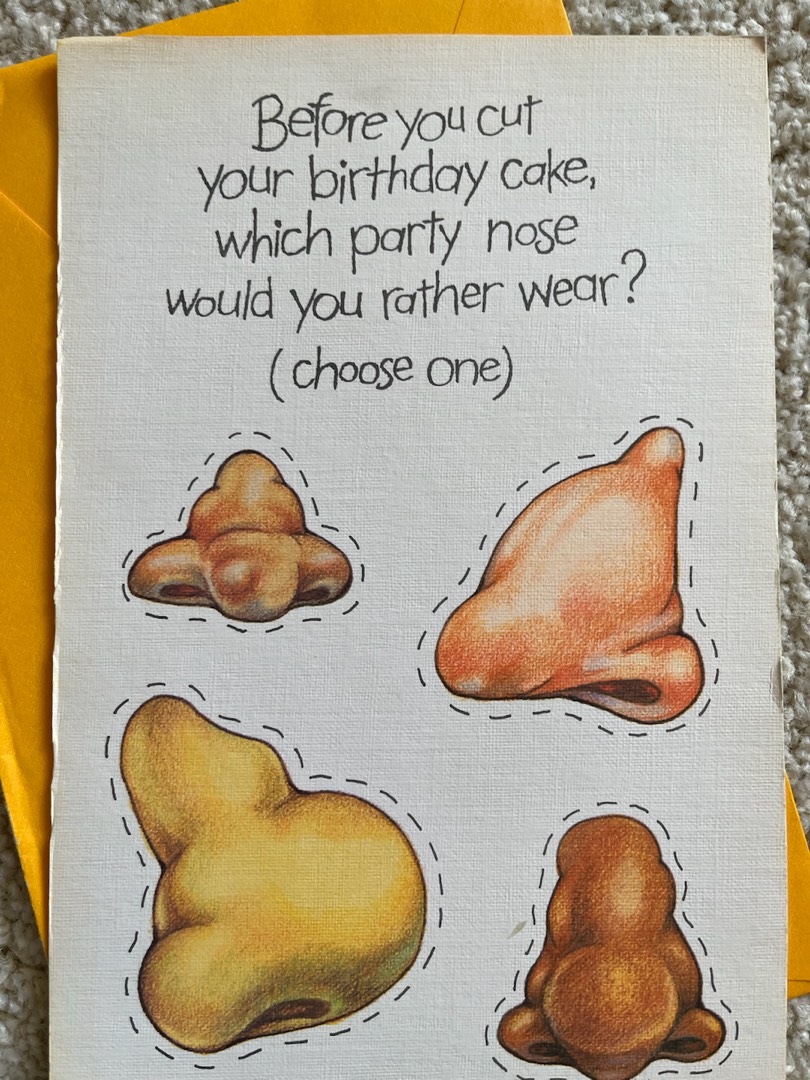 Before you cut
your birthday cake,
which party nose
would you rather wear?
(choose one)